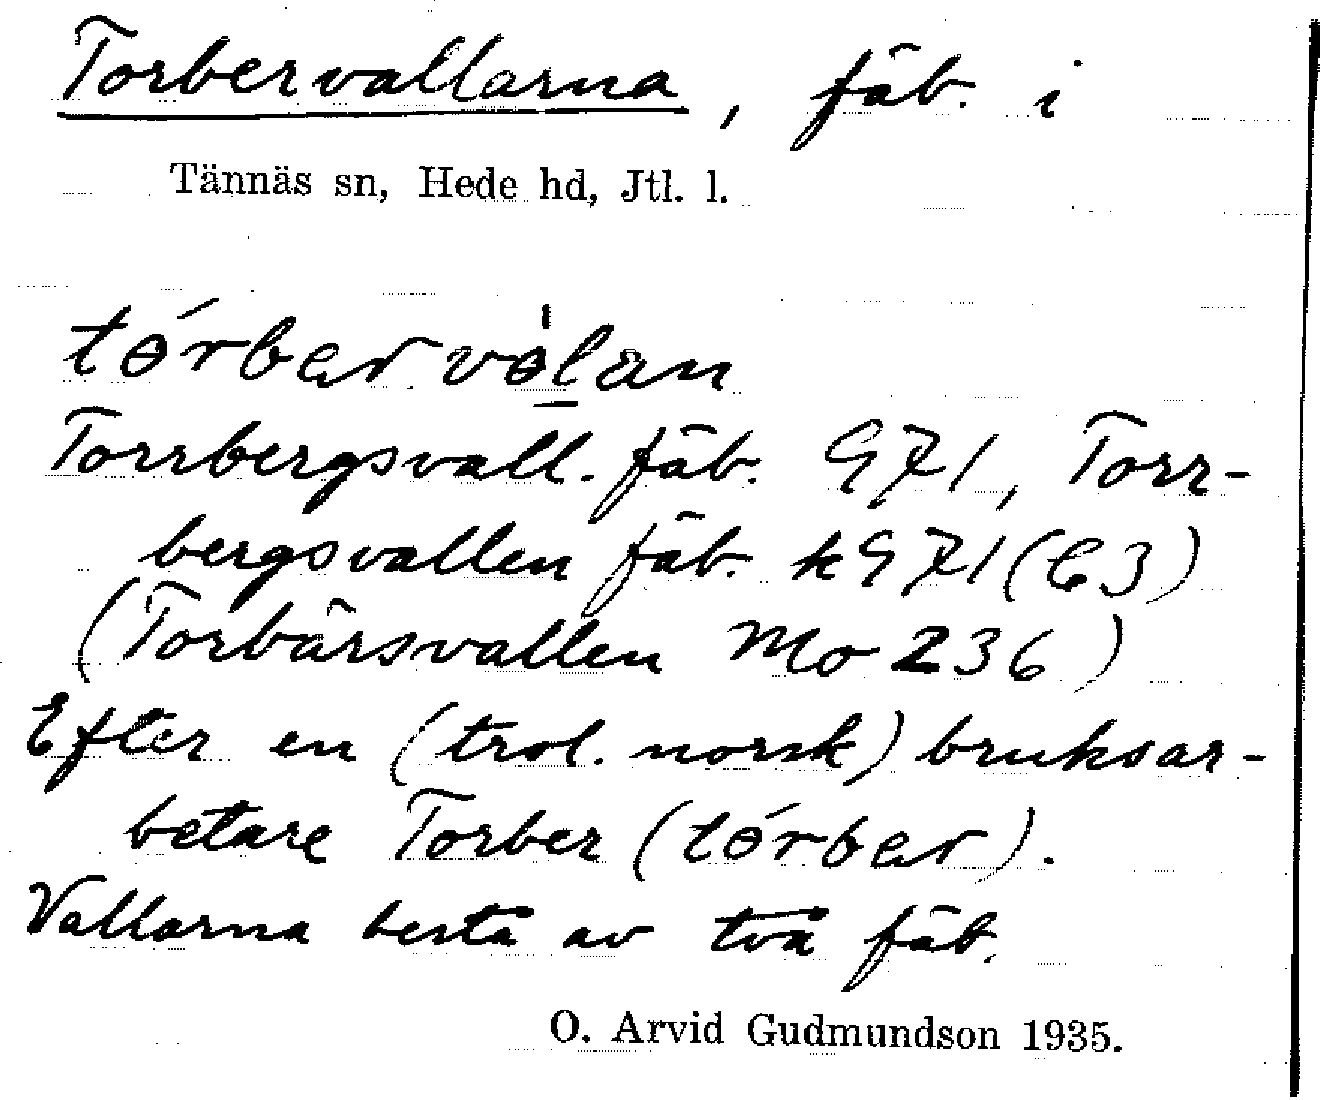 Torbervallarna, fäb. i
Tännäs sn, Hede hd, Jtl. l.
tɵ́rbər vɵ̍lan
Torrbergsvall. fäb. G71, Torr-
bergsvallen fäb. kG71 (C3)
(Torbärsvallen Mo 236)
Efter en (trol. norsk) bruksar-
betare Torber (tɵ́rbər).
Vallarna bestå av två fäb.
O. Arvid Gudmundson 1935.